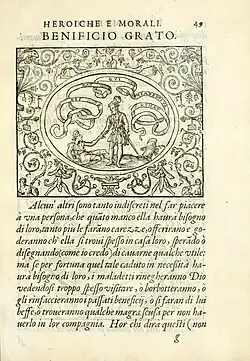 HEROICHE E MORALI. 49
BENIFICIO GRATO.
Alcun' altri sono tanto indiscreti nel far piacere
à vna persona, che quãto manco ella haurà bisogno
di loro, tanto più le farãno carezze, offerirano e go-
deranno ch' ella si troui spesso in casa loro, sperãdo ò
disegnando (come io credo) di cauarne qualche vtile:
ma se per fortuna quel tale caduto in necessità ha-
urà bisogno di loro, i maladetti rinegheranno Dio
vedendosi troppo spesso visitare, ò borbotteranno, ò
gli rinfaccieranno i passati beneficij, ò si faran di lui
beffe, ò troueranno qualche magra scusa per non ha-
uerlo in lor compagnia. Hor chi dira questi (non
g